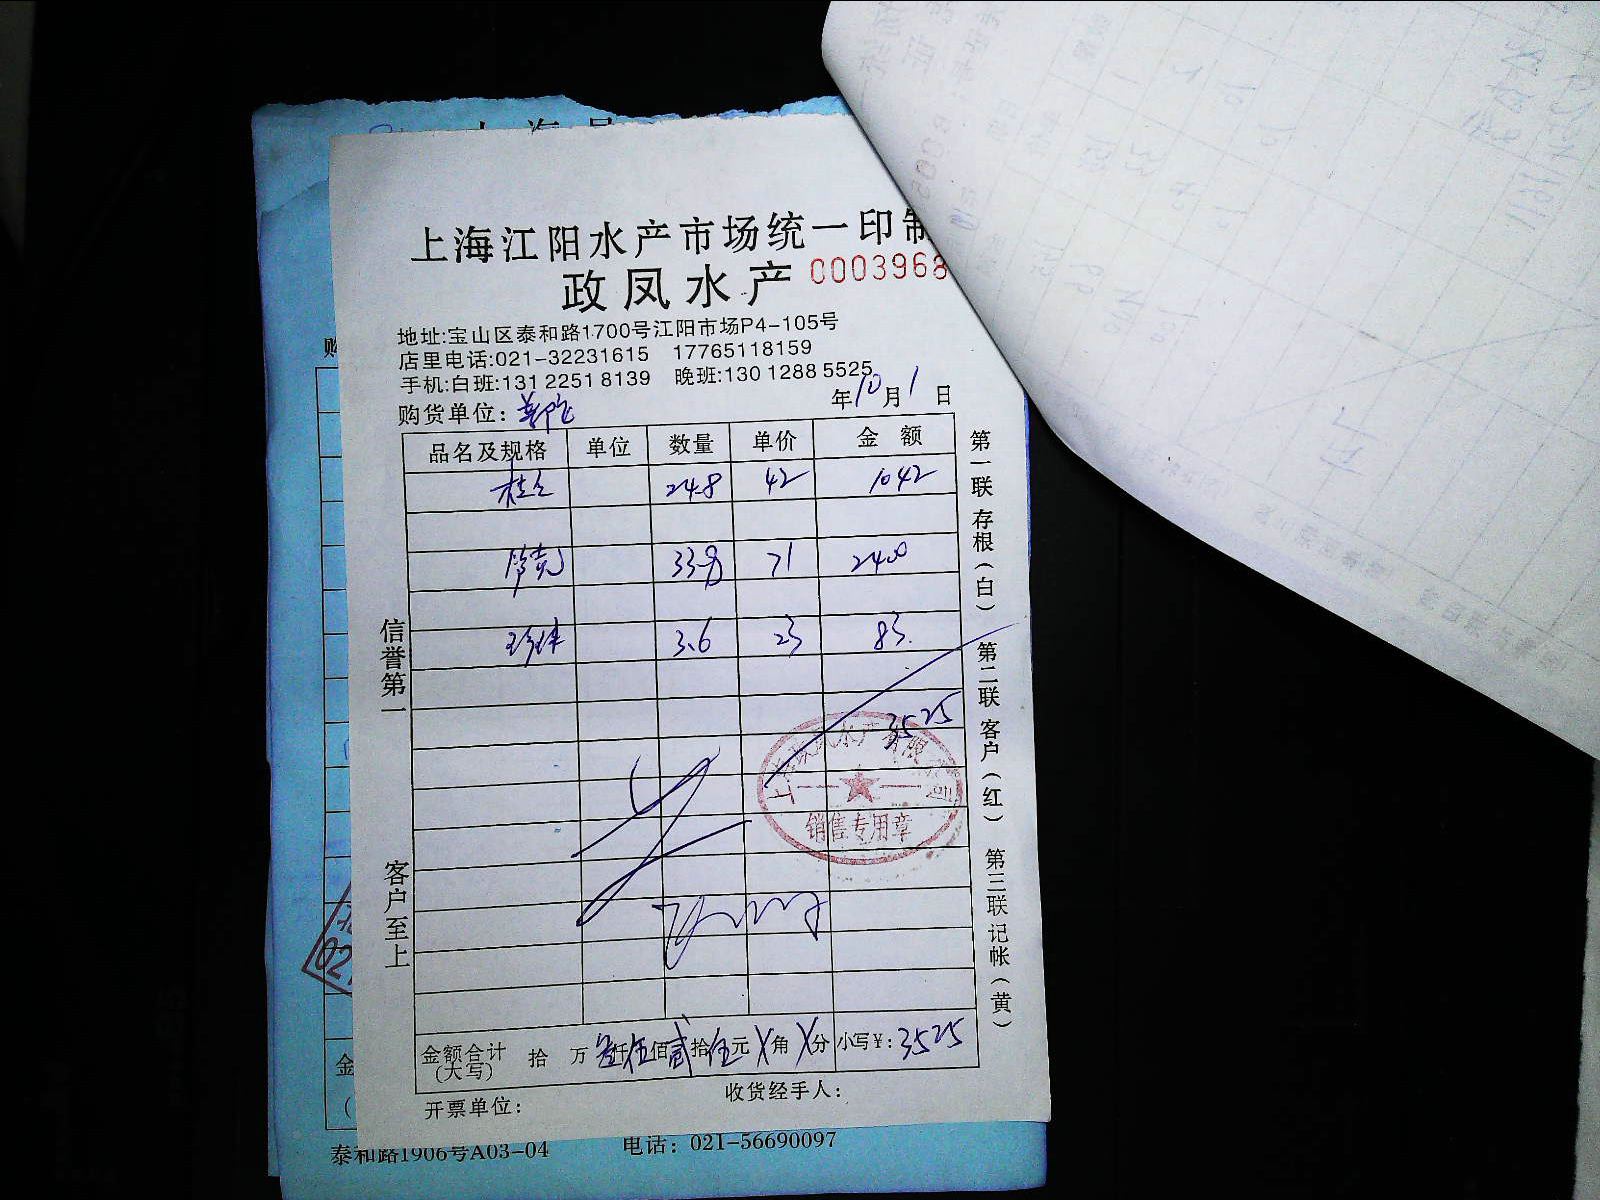 上海江阳水产市场统一印制
政凤水产 0003968
地址:宝山区泰和路1700号江阳市场P4-105号
店里电话:021-32231615 17765118159
手机:白班:131 2251 8139 晚班:130 1288 5525
年10月1日
购货单位:
品名及规格 单位 数量 单价 金额
桂鱼 24.8 42 1042
33.8 71 2400
珍珠 3.6 23 83.
3525
上海政凤水产有限公司
销售专用章
金额合计(大写) 拾 万 叁仟伍佰贰拾伍元 X角 X分 小写¥: 3525
开票单位:
收货经手人:
信誉第一
客户至上
第一联 存根(白) 第二联 客户(红) 第三联 记帐(黄)
泰和路1906号A03-04 电话:021-56690097